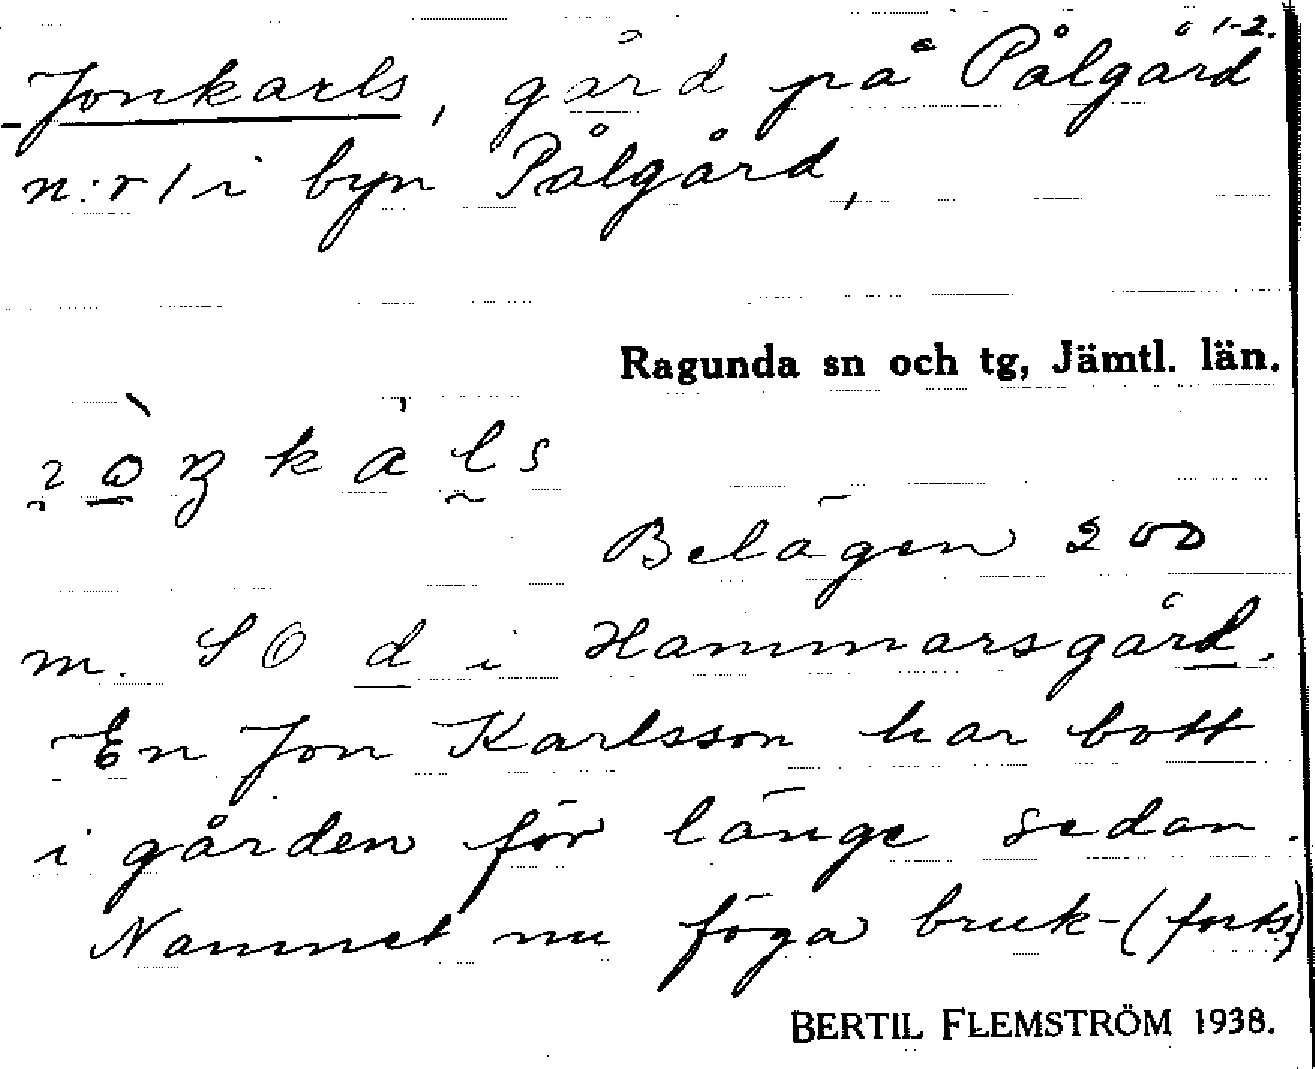 Jonkarls, gård på Pålgård 1-2.
n:r 1 i byn Pålgård,
Ragunda sn och tg, Jämtl. län.
Belägen 200
m. SO d i Hammarsgård.
En Jon Karlsson har bott
i gården för länge sedan.
Namnet nu föga bruk-(forts)
BERTIL FLEMSTRÖM 1938.